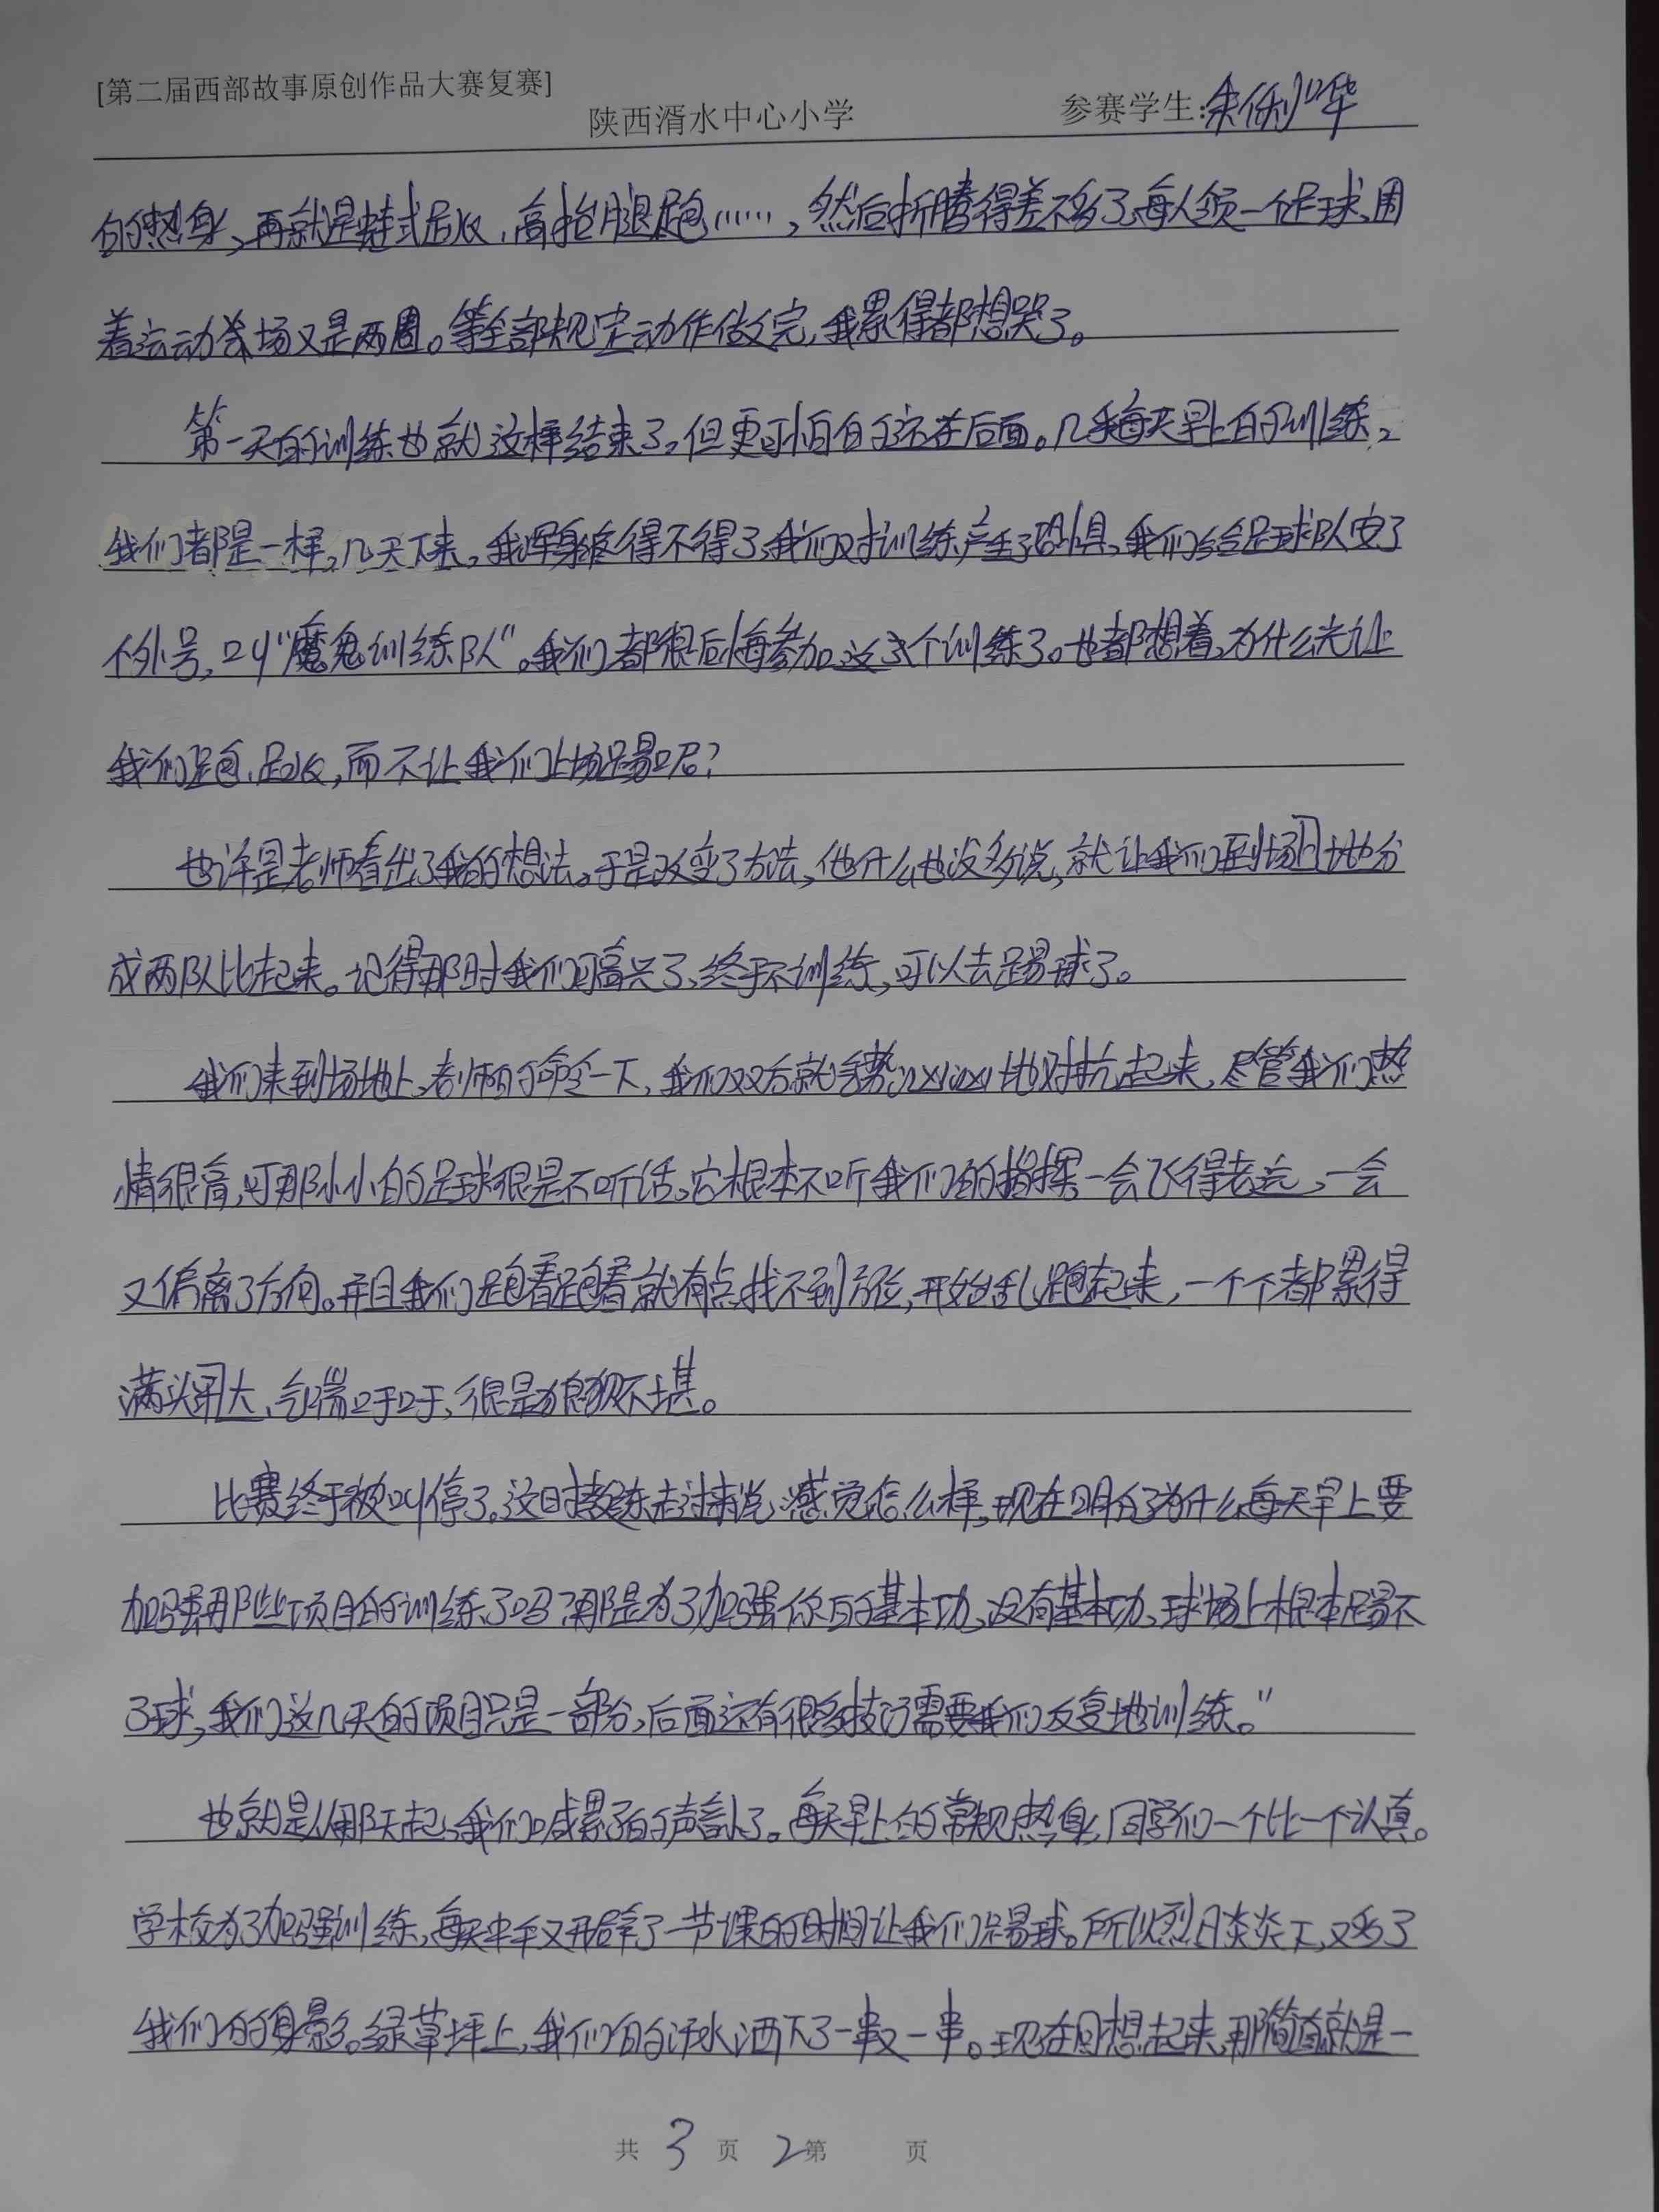 [第二届西部故事原创作品大赛复赛]
陕西湑水中心小学
参赛学生:
的热身,再就是蛙式起跳,高抬腿跑……,然后折腾得差不多了,每人领一个足球,围
着运动场又是两圈。等全部规定动作做完,我累得都想哭了。
第一天的训练也就这样结束了。但更可怕的还在后面。几乎每天早上的训练,
我们都是一样,几天下来,我浑身疼得不得了,我们对训练产生了恐惧,我们给足球队安了
个外号,叫“魔鬼训练队”。我们都很后悔参加这个训练了。也都想着,为什么光让
我们跑、跳,而不让我们上场踢呢?
也许是老师看出了我的想法。于是改变了方法,他什么也没多说,就让我们到场地分
成两队比起来。记得那时我们可高兴了,终于不训练,可以去踢球了。
我们来到场地上,老师的命令一下,我们双方就气势汹汹地对抗起来,尽管我们热
情很高,可那小小的足球很是不听话。它根本不听我们的指挥,一会飞得老远,一会
又偏离了方向。并且我们跑着跑着就有点找不到方位,开始乱跑起来,一个个都累得
满头大汗、气喘吁吁,很是狼狈不堪。
比赛终于被叫停了。这时教练走过来说:感觉怎么样,现在明白了为什么每天早上要
加强那些项目的训练了吗?那是为了加强你的基本功,没有基本功,球场上根本踢不
了球,我们这几天的项目只是一部分,后面还有很多技巧需要我们反复地训练。”
也就是从那天起,我们喊累的声音小了。每天早上的常规热身,同学们一个比一个认真。
学校为了加强训练,每天中午又开辟了一节课的时间让我们踢球。所以烈日炎炎下,又多了
我们的身影。绿草坪上,我们的汗水洒下了一串又一串。现在回想起来,那简直就是一
共 3 页 2 第 页